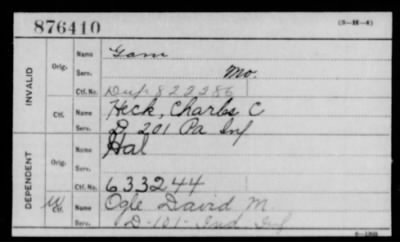 876410 (3-H-4)
INVALID
Orig. Name Gam
Serv. Mo.
Ctf. No. Dup 822286
Ctf. Name Heck, Charles C
Serv. D, 201 Pa Inf
DEPENDENT
Orig. Name Hal
Serv.
Ctf. No. 633244
W Ctf. Name Ogle David M.
Serv. D-101-Ind Inf